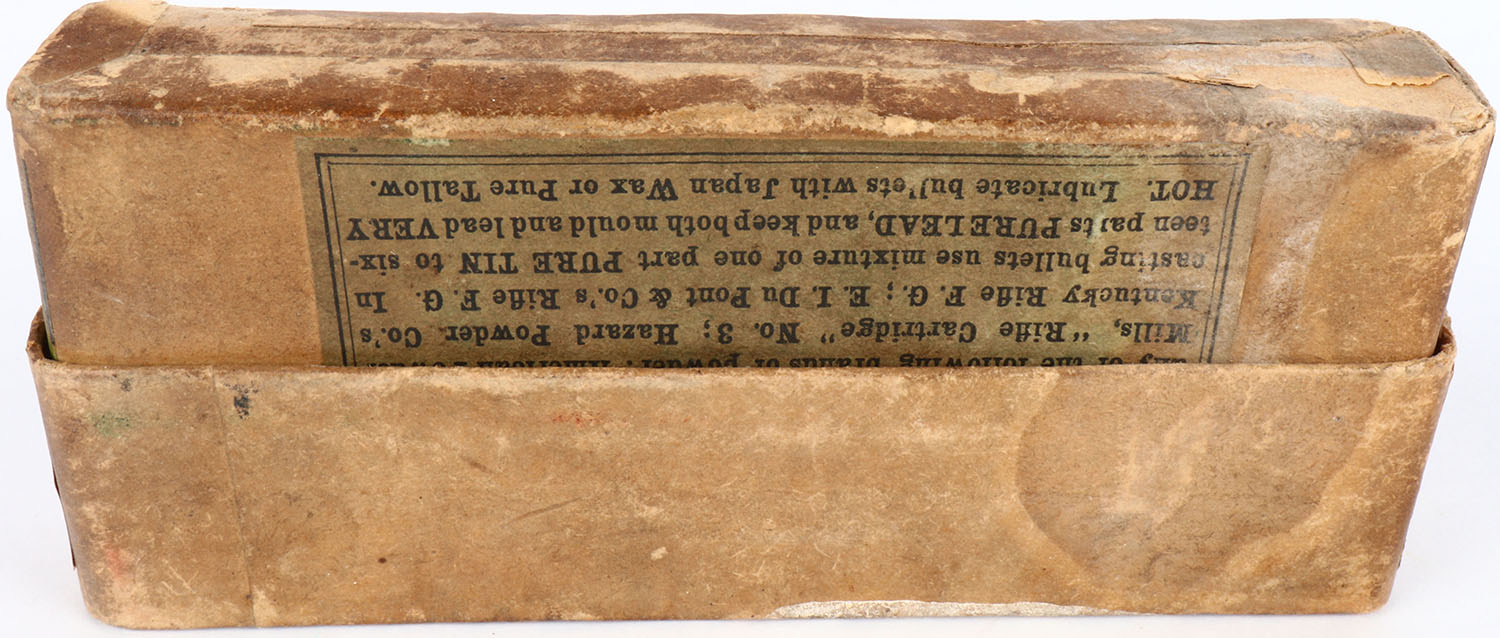 any of the following brands of powder: American Powder
Mills, "Rifle Cartridge" No. 3; Hazard Powder Co.'s
Kentucky Rifle F. G.; E. I. Du Pont & Co.'s Rifle F. G. In
casting bullets use mixture of one part PURE TIN to six-
teen parts PURE LEAD, and keep both mould and lead VERY
HOT. Lubricate bullets with Japan Wax or Pure Tallow.